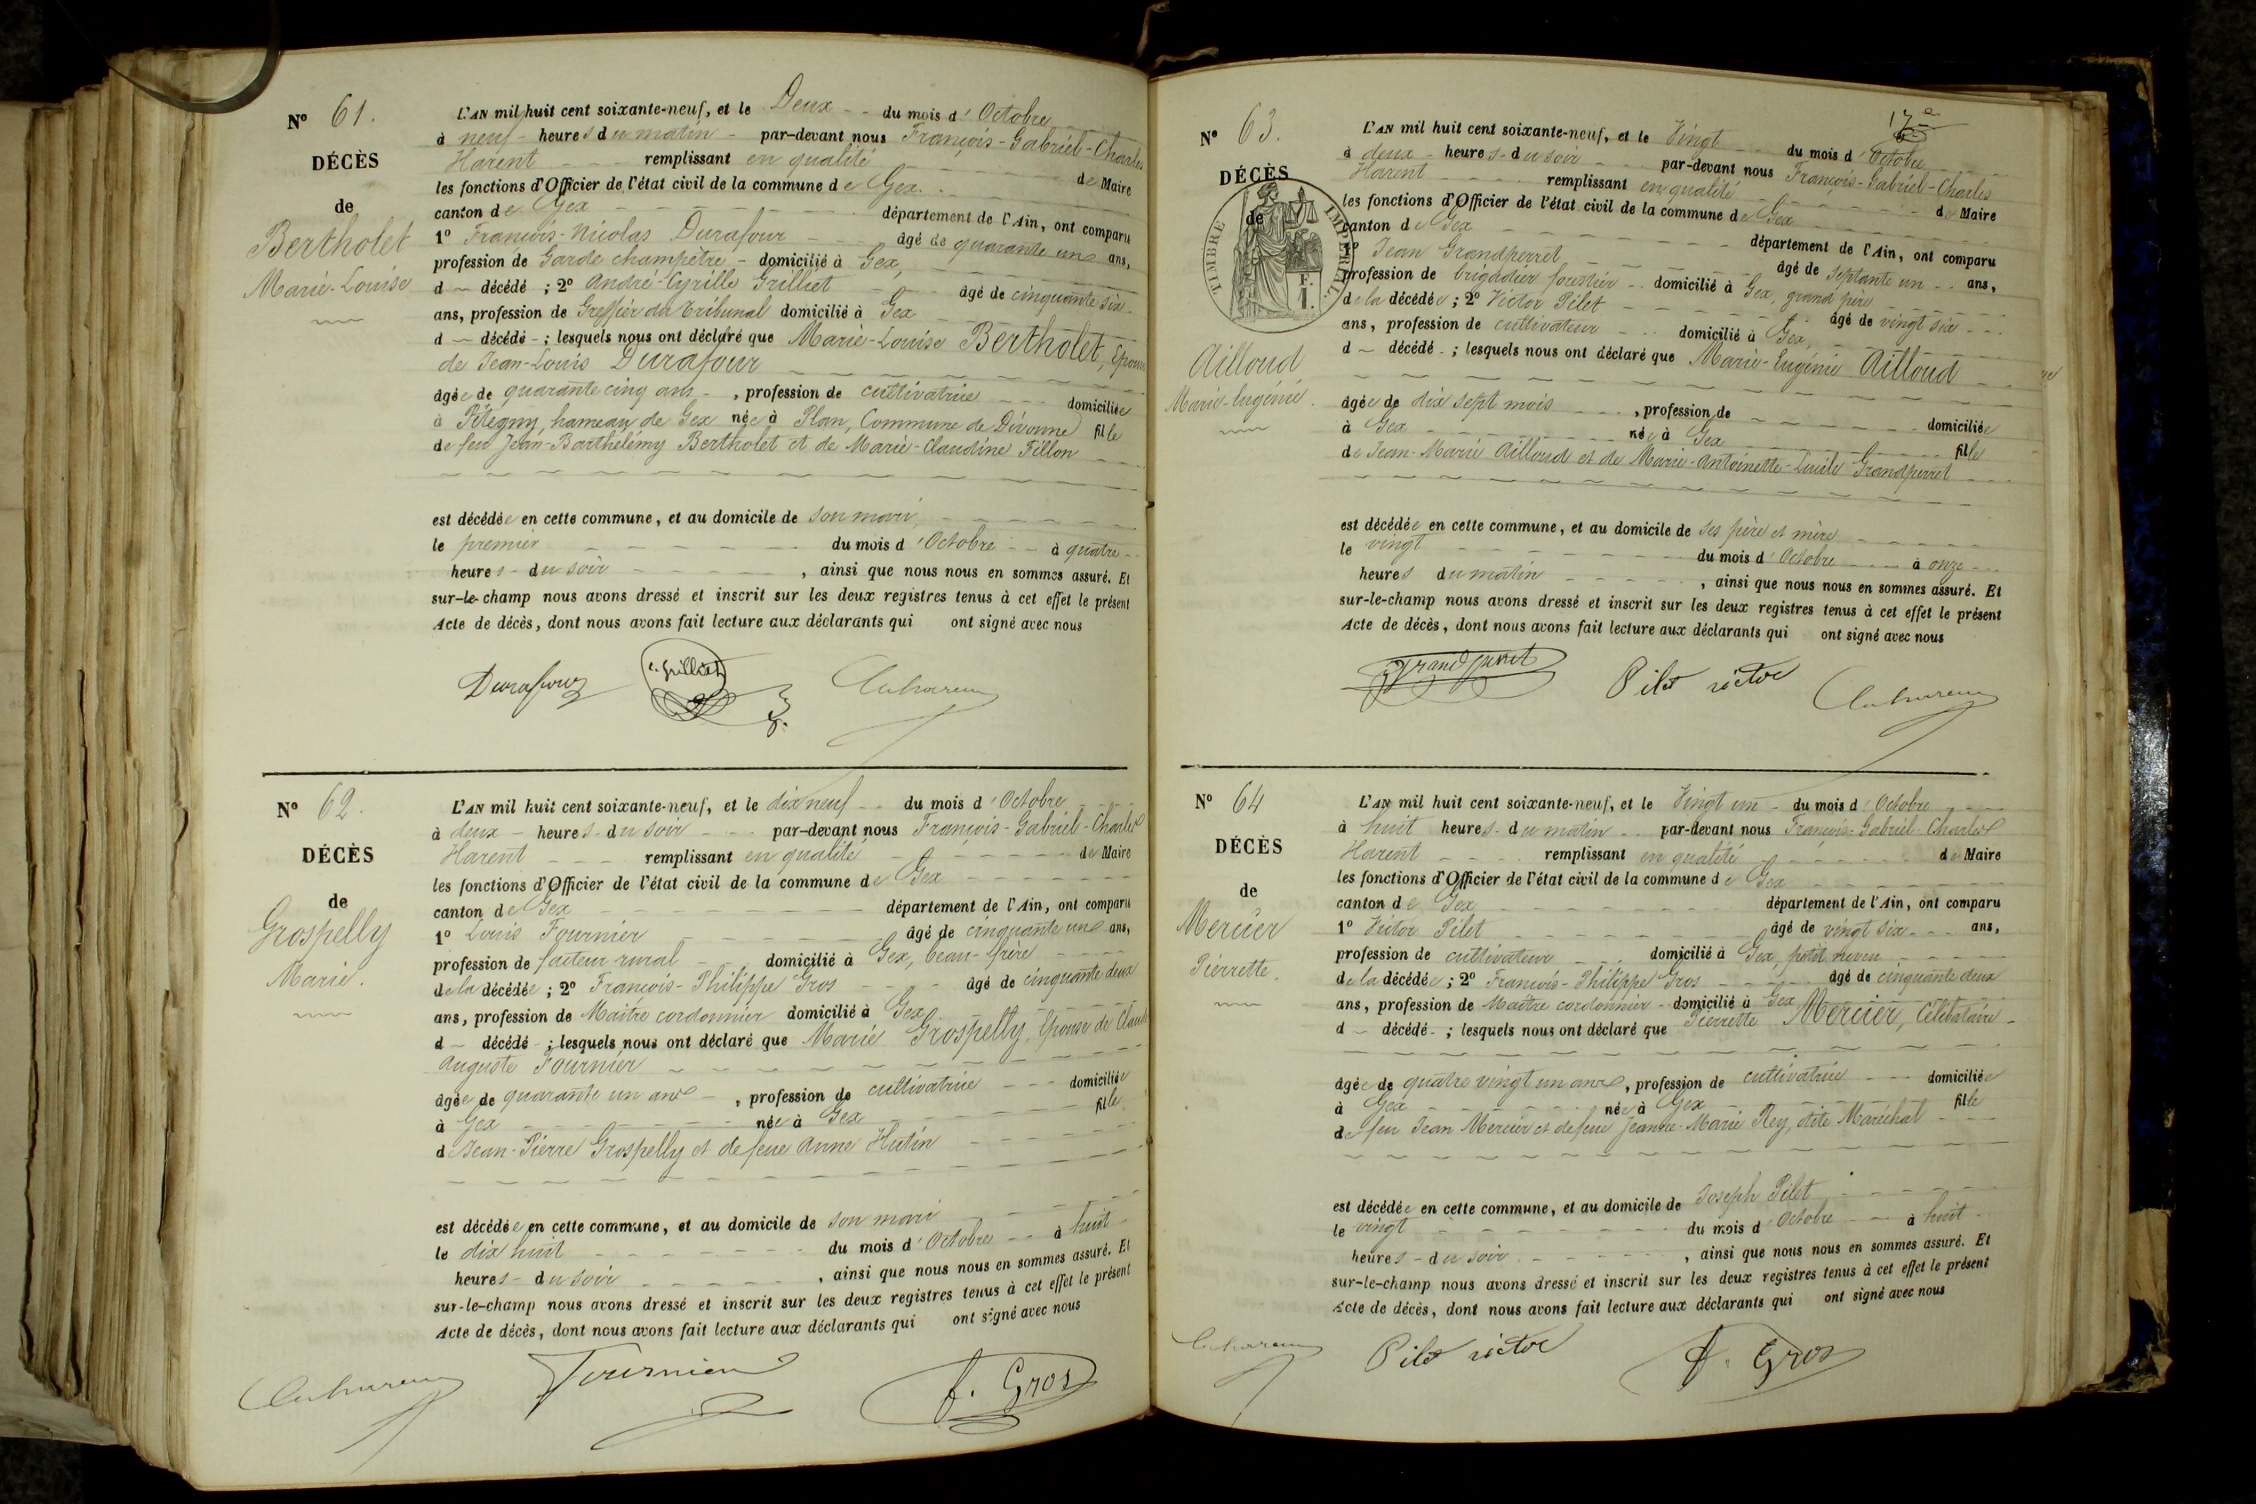 N° 61.
DÉCÈS
de
Bertholet
Marie-Louise
L'AN mil huit cent soixante-neuf, et le Deux du mois d'Octobre
à neuf heures du matin par-devant nous François-Gabriel-Charles
Harent remplissant en qualité de Maire
les fonctions d'Officier de l'état civil de la commune de Gex.
canton de Gex département de l'Ain, ont comparu
1° François-Nicolas Durafour âgé de quarante un ans,
profession de Garde champêtre domicilié à Gex,
d décédé ; 2° André-Cyrille Grilliet âgé de cinquante six
ans, profession de Greffier du Tribunal domicilié à Gex
d décédé ; lesquels nous ont déclaré que Marie-Louise Bertholet, Epouse
de Jean-Louis Durafour
âgée de quarante cinq ans, profession de cultivatrice domiciliée
à Pitegny, hameau de Gex née à Plan, Commune de Divonne fille
de feu Jean-Barthélémy Bertholet et de Marie-Claudine Fillon
est décédée en cette commune, et au domicile de son mari,
le premier du mois d'Octobre à quatre
heures du soir, ainsi que nous nous en sommes assuré. Et
sur-le-champ nous avons dressé et inscrit sur les deux registres tenus à cet effet le présent
Acte de décès, dont nous avons fait lecture aux déclarants qui ont signé avec nous
Durafour c. Grilliet
N° 62.
DÉCÈS
de
Grospelly
Marie.
L'AN mil huit cent soixante-neuf, et le dix neuf du mois d'Octobre
à deux heures du soir par-devant nous François-Gabriel-Charles
Harent remplissant en qualité de Maire
les fonctions d'Officier de l'état civil de la commune de Gex
canton de Gex département de l'Ain, ont comparu
1° Louis Fournier âgé de cinquante un ans,
profession de facteur rural domicilié à Gex, beau-frère
de la décédée ; 2° François-Philippe Gros âgé de cinquante deux
ans, profession de Maître cordonnier domicilié à Gex
d décédé ; lesquels nous ont déclaré que Marie Grospelly, Epouse de Claude
Auguste Fournier
âgée de quarante un ans, profession de cultivatrice domiciliée
à Gex née à Gex fille
de Jean-Pierre Grospelly et de feue Anne Hutin
est décédée en cette commune, et au domicile de son mari
le dix huit du mois d'Octobre à huit
heures du soir, ainsi que nous nous en sommes assuré. Et
sur-le-champ nous avons dressé et inscrit sur les deux registres tenus à cet effet le présent
Acte de décès, dont nous avons fait lecture aux déclarants qui ont signé avec nous
Fournier f. Gros
17e
N° 63.
DÉCÈS
de
TIMBRE IMPÉRIAL
F.
1.
Ailloud
Marie-Eugénie.
L'AN mil huit cent soixante-neuf, et le Vingt du mois d'Octobre
à deux heures du soir par-devant nous François-Gabriel-Charles
Harent remplissant en qualité de Maire
les fonctions d'Officier de l'état civil de la commune de Gex
canton de Gex département de l'Ain, ont comparu
1° Jean Grandperret âgé de septante un ans,
profession de brigadier forestier domicilié à Gex, grand père
de la décédée ; 2° Victor Pilet âgé de vingt six
ans, profession de cultivateur domicilié à Gex,
d décédé ; lesquels nous ont déclaré que Marie-Eugénie Ailloud
âgée de dix sept mois, profession de domiciliée
à Gex née à Gex fille
de Jean-Marie Ailloud et de Marie-Antoinette-Lucile Grandperret
est décédée en cette commune, et au domicile de ses père et mère
le vingt du mois d'Octobre à onze
heures du matin, ainsi que nous nous en sommes assuré. Et
sur-le-champ nous avons dressé et inscrit sur les deux registres tenus à cet effet le présent
Acte de décès, dont nous avons fait lecture aux déclarants qui ont signé avec nous
Grandperret Pilet victor
N° 64
DÉCÈS
de
Mercier
Pierrette.
L'AN mil huit cent soixante-neuf, et le Vingt un du mois d'Octobre
à huit heures du matin par-devant nous François-Gabriel-Charles
Harent remplissant en qualité de Maire
les fonctions d'Officier de l'état civil de la commune de Gex
canton de Gex département de l'Ain, ont comparu
1° Victor Pilet âgé de vingt six ans,
profession de cultivateur domicilié à Gex, petit neveu
de la décédée ; 2° François-Philippe Gros âgé de cinquante deux
ans, profession de Maître cordonnier domicilié à Gex
d décédé ; lesquels nous ont déclaré que Pierrette Mercier, Célibataire
âgée de quatre vingt un ans, profession de cultivatrice domiciliée
à Gex née à Gex fille
de feu Jean Mercier et de feue Jeanne-Marie Rey, dite Maréchal
est décédée en cette commune, et au domicile de Joseph Pilet
le vingt du mois d'Octobre à huit
heures du soir, ainsi que nous nous en sommes assuré. Et
sur-le-champ nous avons dressé et inscrit sur les deux registres tenus à cet effet le présent
Acte de décès, dont nous avons fait lecture aux déclarants qui ont signé avec nous
Pilet victor f. Gros